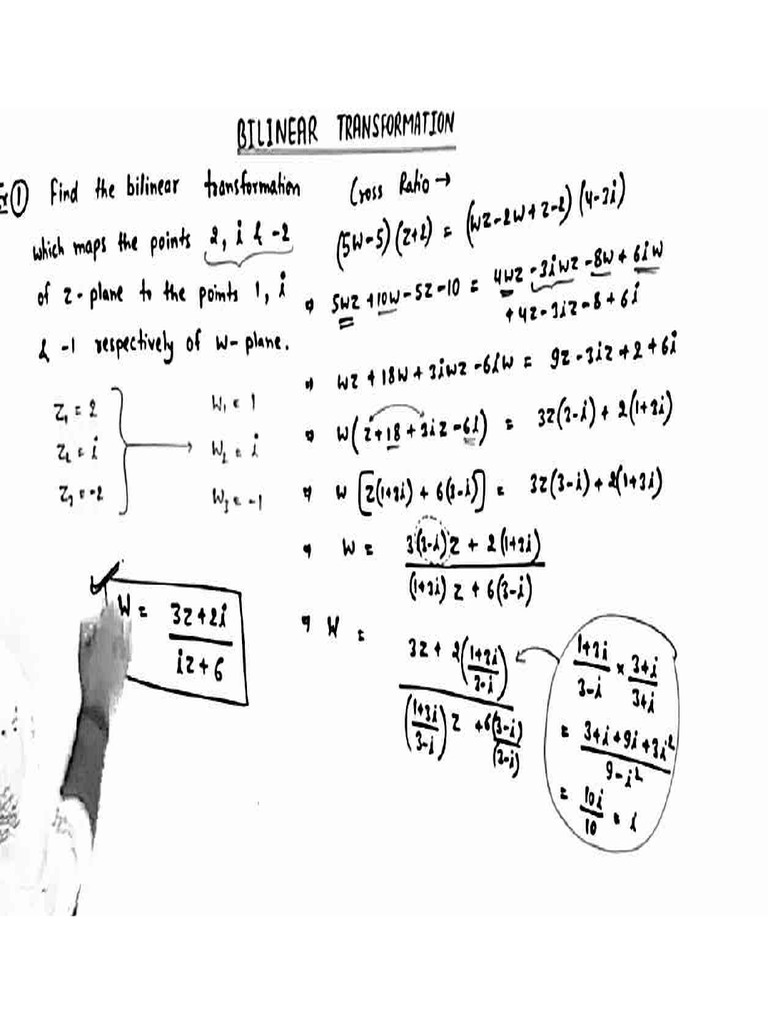 BILINEAR TRANSFORMATION
Ex ① Find the bilinear transformation
which maps the points 2, i & -2
of z-plane to the points 1, i
& -1 respectively of w-plane.
z₁ = 2 w₁ = 1
z₂ = i w₂ = i
z₃ = -2 w₃ = -1
w = (3z+2i)/(iz+6)
Cross Ratio →
(5w-5)(z+2) = (wz-2w+z-2)(4-3i)
⇒ 5wz+10w-5z-10 = 4wz-3iwz-8w+6iw
+4z-3iz-8+6i
⇒ wz+18w+3iwz-6iw = 9z-3iz+2+6i
⇒ w(z+18+3iz-6i) = 3z(3-i)+2(1+3i)
⇒ w[z(1+3i)+6(3-i)] = 3z(3-i)+2(1+3i)
⇒ w = (3(3-i)z+2(1+3i))/((1+3i)z+6(3-i))
⇒ w = (3z+2((1+3i)/(3-i)))/(((1+3i)/(3-i))z+6(3-i)/(3-i))
(1+3i)/(3-i) × (3+i)/(3+i)
= (3+i+9i+3i²)/(9-i²)
= 10i/10 = i